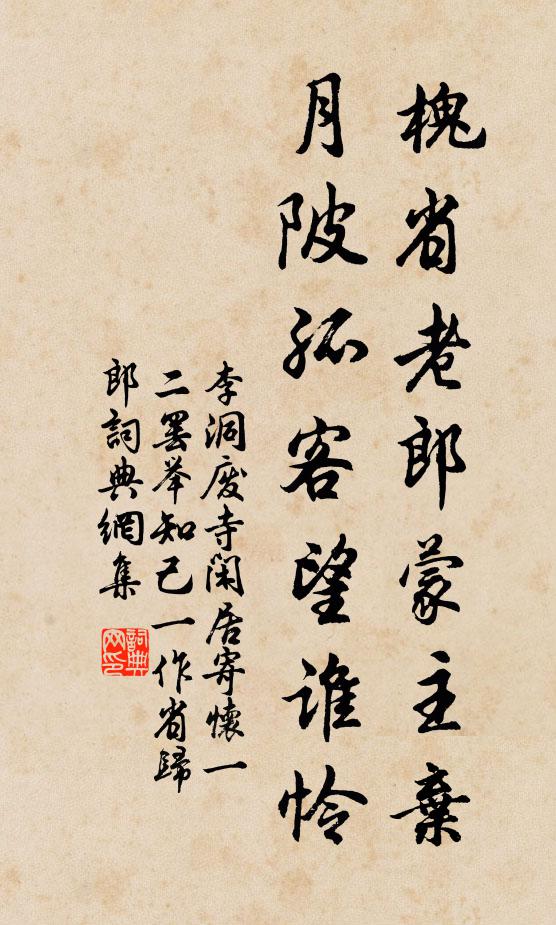 槐省老郎蒙主棄
月陂孤客望誰怜
李洞廢寺閑居寄懷一
二罢举知己一作省歸
郎詞典網集
詞典網印